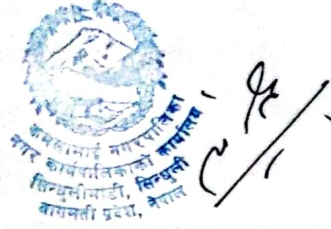 कमलामाई नगरपालिका
नगर कार्यपालिकाको कार्यालय
सिन्धुलीमाढी, सिन्धुली
बागमती प्रदेश, नेपाल